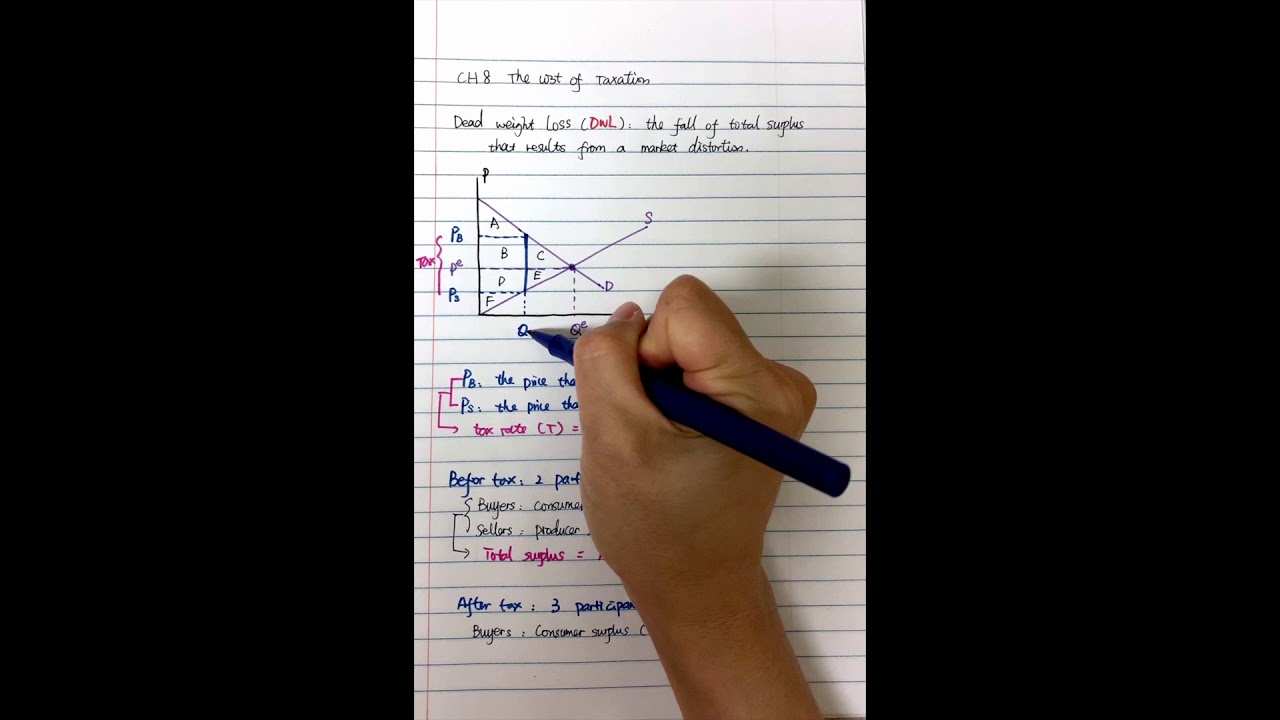 CH 8 The cost of Taxation
Dead weight Loss (DWL): the fall of total surplus
that results from a market distortion.
P
S
A
PB
B
C
Tax
Pe
D
E
D
PS
F
Q
Qe
PB: the price tha
PS: the price tha
tax rate (T) =
Befor tax: 2 part
Buyers: consumer
Sellers: producer
Total surplus =
After tax: 3 participan
Buyers: Consumer surplus (